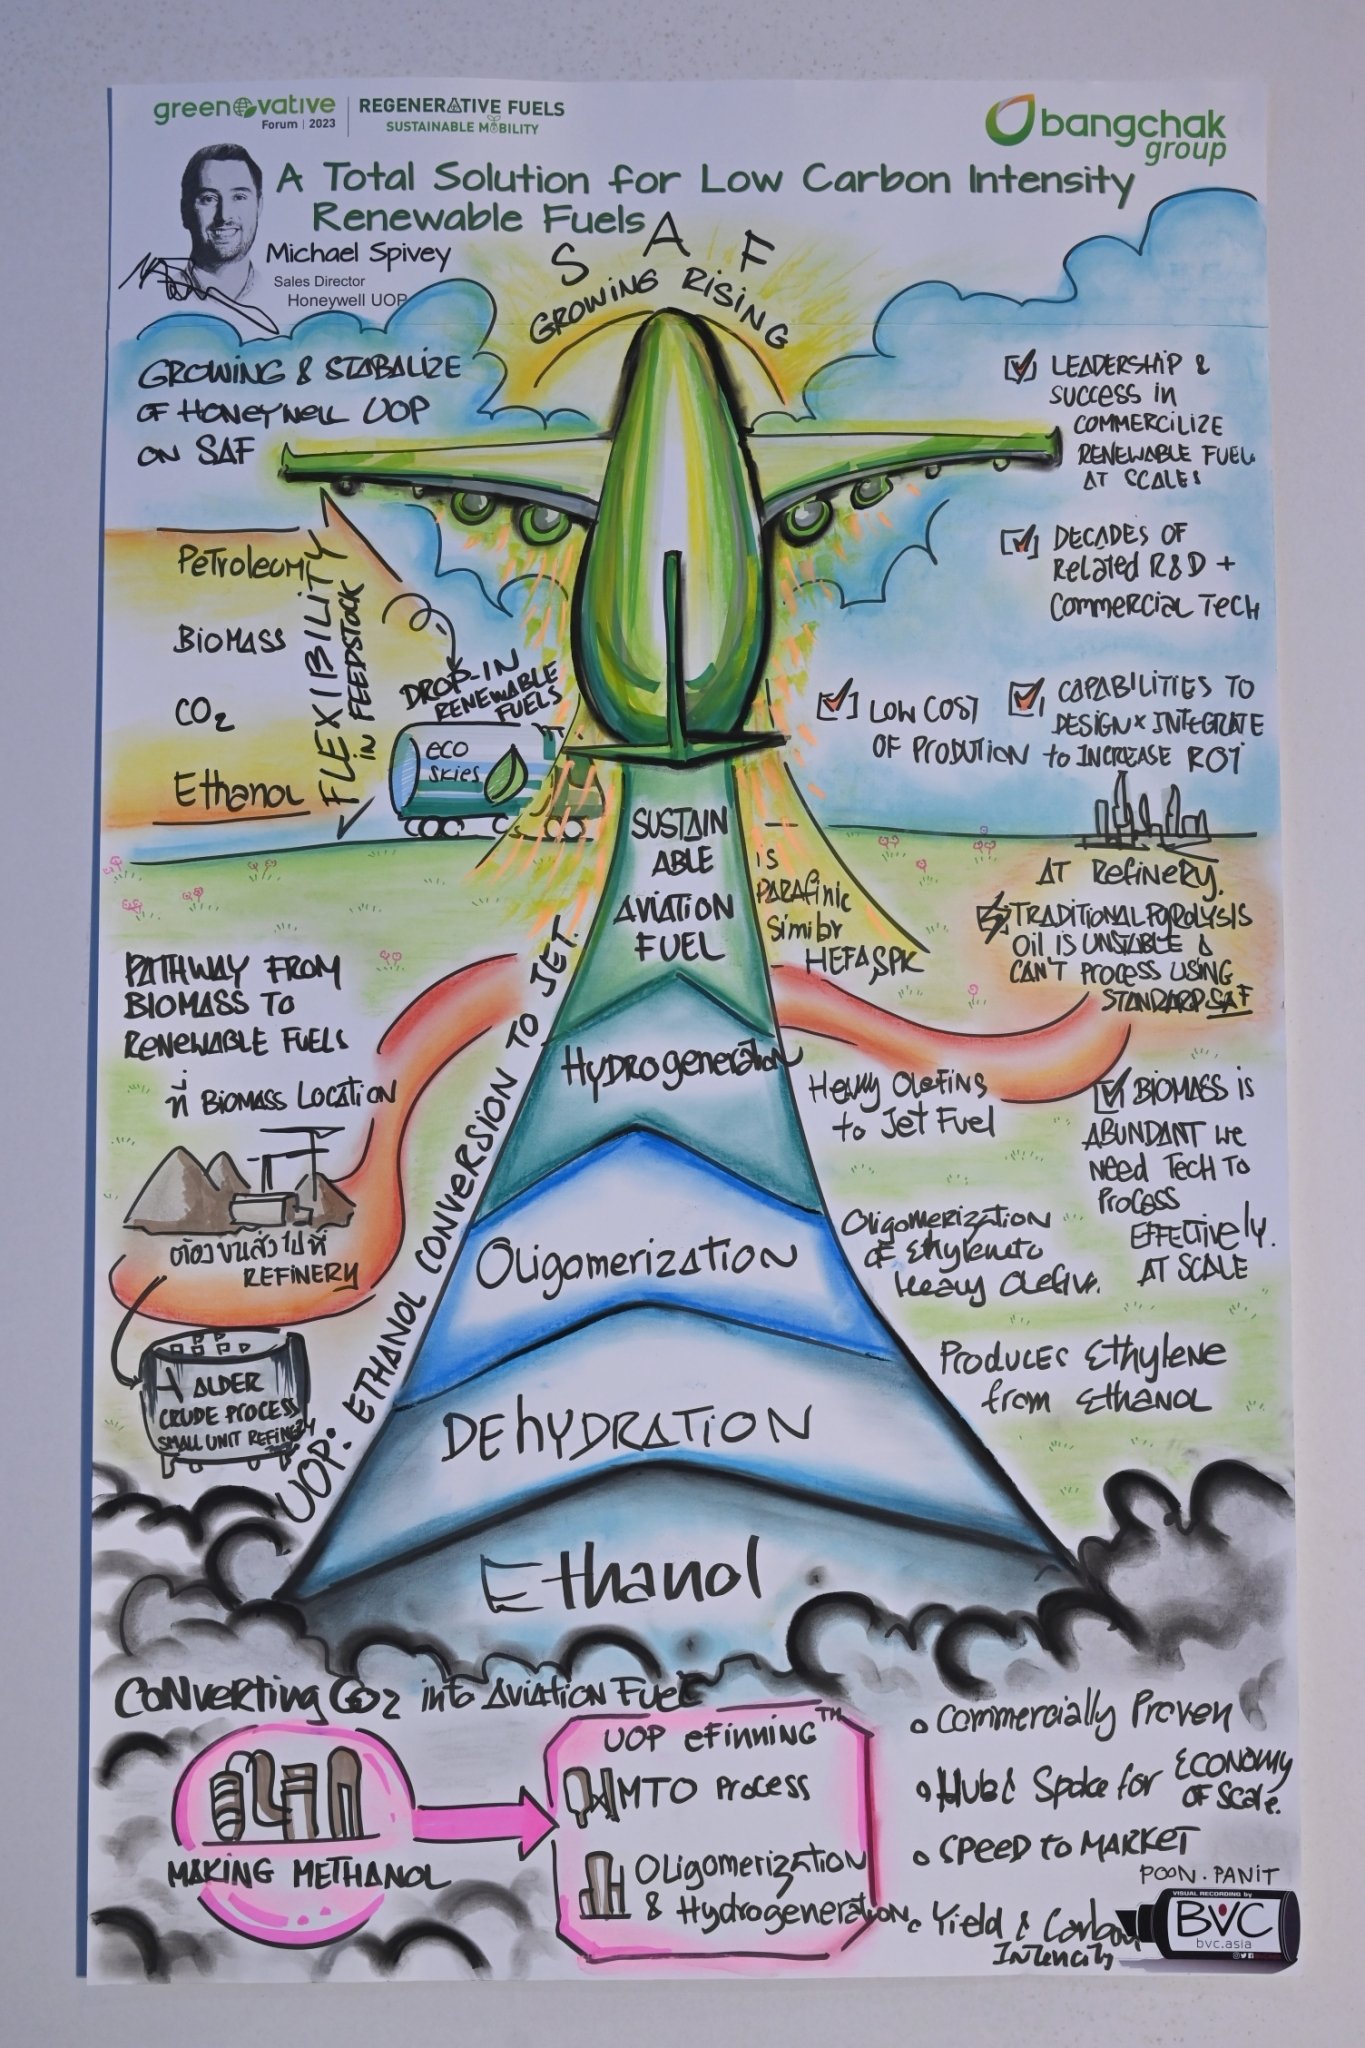 greenovative
Forum | 2023
REGENERATIVE FUELS
SUSTAINABLE MOBILITY
bangchak
group
A Total Solution for Low Carbon Intensity
Renewable Fuels
Michael Spivey
Sales Director
Honeywell UOP
SAF
GROWING RISING
GROWING & STABALIZE
OF HONEYWELL UOP
ON SAF
PETROLEUM
BIOMASS
CO2
Ethanol
FLEXIBILITY
IN FEEDSTOCK
DROP-IN
RENEWABLE
FUELS
eco
skies
LEADERSHIP &
SUCCESS IN
COMMERCILIZE
RENEWABLE FUEL
AT SCALES
DECADES OF
Related R&D +
Commercial Tech
LOW COST
OF PRODUTION
CAPABILITIES TO
DESIGN & INTEGRATE
to INCREASE ROI
SUSTAIN
ABLE
AVIATION
FUEL
is
PARAfinic
Similar
HEFA SPK
AT Refinery.
TRADITIONAL PYROLYSIS
Oil IS UNSTABLE &
CAN'T PROCESS USING
STANDARD SAF
PATHWAY FROM
BIOMASS TO
RENEWABLE FUELS
ที่ BIOMASS LOCATION
ต้องขนส่งไปที่
REFINERY
ALDER
CRUDE PROCESS
SMALL UNIT REFINERY
UOP: ETHANOL CONVERSION TO JET.
Hydrogeneration
Heavy Olefins
to Jet Fuel
BIOMASS IS
ABUNDANT We
Need Tech to
Process
EFFECTIVELY.
AT SCALE
Oligomerization
Oligomerization
of Ethylene to
Heavy Olefin.
DEHYDRATION
Produces Ethylene
from Ethanol
Ethanol
Converting CO2 into Aviation Fuel
MAKING METHANOL
UOP eFinning™
MTO Process
Oligomerization
& Hydrogeneration
Commercially Proven
Hub & Spoke for ECONOMY
OF Scale.
SPEED to MARKET
Yield & Carbon
Intencity
POON. PANIT
VISUAL RECORDING by
BVC
bvc.asia